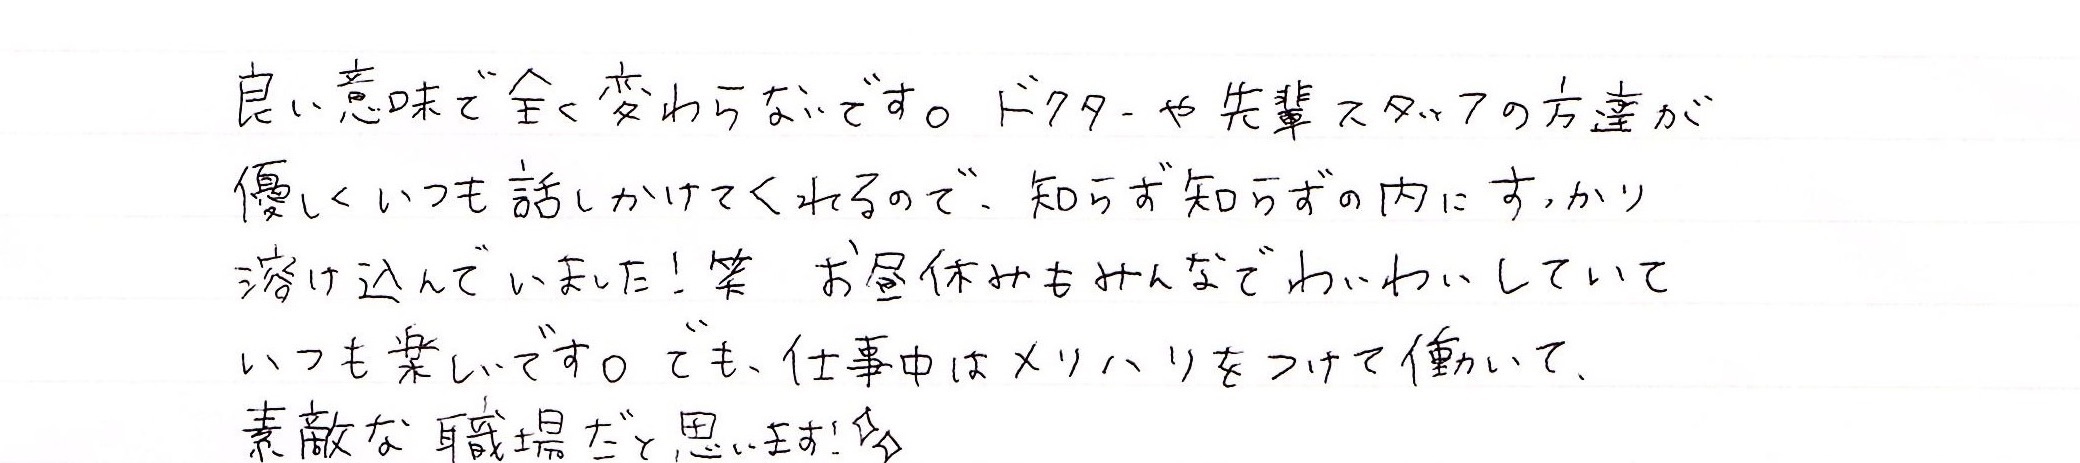 良い意味で全く変わらないです。ドクターや先輩スタッフの方達が
優しくいつも話しかけてくれるので、知らず知らずの内にすっかり
溶け込んでいました!笑 お昼休みもみんなでわいわいしていて
いつも楽しいです。でも、仕事中はメリハリをつけて働いて、
素敵な職場だと思います!